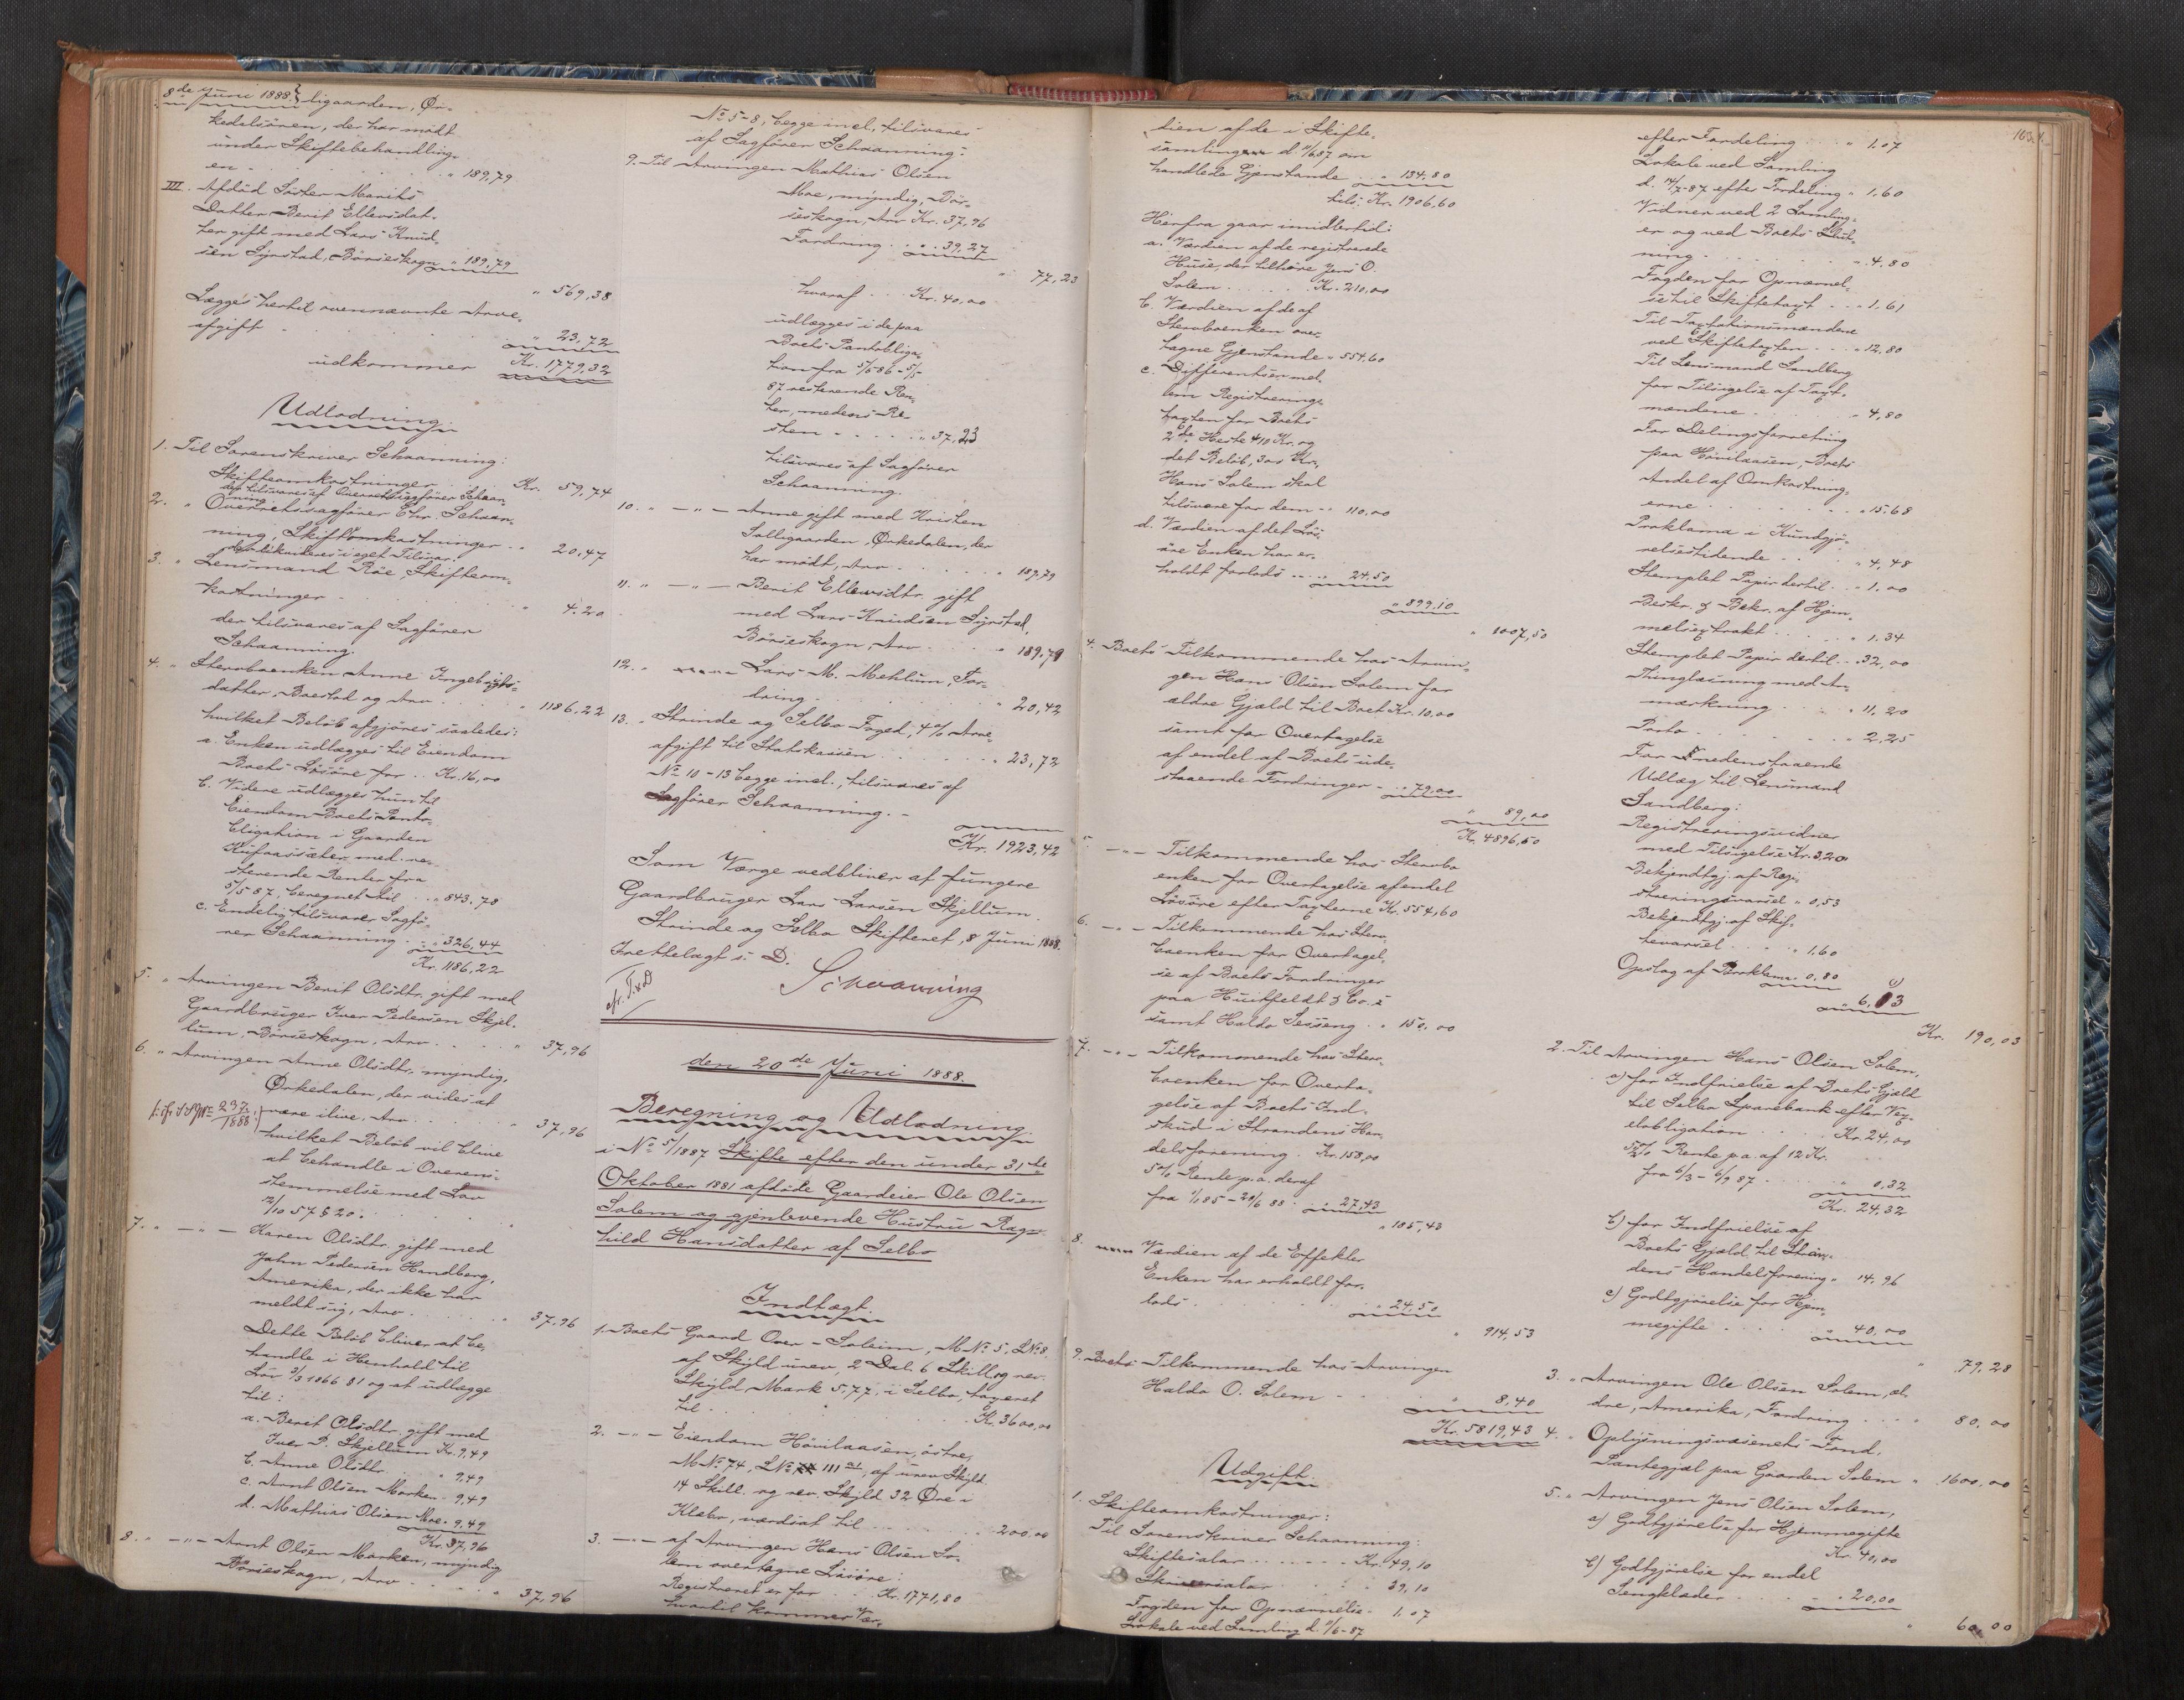 8de Juni 1888. ligaarden, Ør-
kedalsøren, der har mødt
under Skiftebehandling-
en . . . . " 189,79
III. Afdød Søster Marits
Datter Berit Ellevsdat-
ter gift med Lars Knud-
sen Syrstad, Børseskogn " 189,79
" 569,38
Lægges hertil ovennævnte Arve-
afgift . . . . " 23,72
udkommer Kr. 1779,32
Udlodning.
1. Til Sorenskriver Schaanning:
Skifteomkostninger . . Kr. 59,74
der tilsvares af Overretssagfører Schaan-
ning.
2. " Overretssagfører Chr. Schaan-
ning, Skifteomkostninger . . 20,47
der likvideres i eget Tilsvar.
3. " Lensmand Röe, Skifteom-
kostninger . . . . " 4.20
der tilsvares af Sagfører
Schaanning.
4. " Stervboenken Anne Ingebrigts-
datter, Boeslod og Arv . . . " 1186,22
hvilket Beløb afgjøres saaledes:
a. Enken udlægges til Eiendom
Boets Løsøre for . . Kr. 16,00
b. Videre udlægges hun til
Eiendom Boets Panto-
bligation i Gaarden
med re-
sterende Renter fra
5/5 87, beregnet til . . " 843,78
c. Endelig tilsvarer Sagfø-
rer Schaanning . . " 326,44
Kr. 1186,22
5. " Arvingen Berit Olsdtr. gift med
Gaardbruger Iver Pedersen Skjel-
lum, Børseskogn, Arv . . . " 37,96
6. " Arvingen Anne Olsdtr., myndig,
Ørkedalen, der vides at
være ilive, Arv . . . " 37,96
f. cfr. S.P. No 237/1888
hvilket Beløb vil blive
at behandle i Overens-
stemmelse med Lov
12/10 57 § 20.
7. " — " — Karen Olsdtr. gift med
John Pedersen Handberg,
Amerika, der ikke har
meldt sig, Arv . . . " 37,96
Dette Beløb bliver at be-
handle i Henhold til
Lov 3/3 1866 § 1 og at udlægge
til:
a. Beret Olsdtr. gift med
Iver P. Skjellum Kr. 9,49
b. Anne Olsdtr. . . " 9,49
c. Arnt Olsen Morken . 9,49
d. Mathias Olsen Moe . 9,49
Kr. 37,96
8. " — " — Arnt Olsen Morken, myndig
Børseskogn, Arv . . . . " 37,96
No 5-8, begge incl., tilsvares
af Sagfører Schaanning.
9. Til Arvingen Mathias Olsen
Moe, myndig, Bør-
seskogn, Arv Kr. 37,96
Fordring . . " 39,27
" 77,23
hvoraf . . Kr. 40,00
udlægges i de paa
Boets Pantobliga-
tion fra 5/5 86 - 5/5
87 resterende Ren-
ter, medens Re-
sten . . . . " 37,23
tilsvares af Sagfører
Schaanning.
10. " — " — Anne gift med Kristen
Solligaarden, Ørkedalen, der
har mødt, Arv . . . . " 189,79
11. " — " — Berit Ellevsdtr. gift
med Lars Knudsen Syrstad,
Børseskogn, Arv . . . " 189,79
12. " Lars M. Mehlum, For-
dring . . . . " 20,42
13. " Strinde og Selbo Foged, 4% Arve-
afgift til Statskassen . . . . " 23,72
No 10-13 begge incl., tilsvares af
Sagfører Schaanning. -
Kr. 1923,42
Som Værge vedbliver at fungere
Gaardbruger Lars Larsen Skjellum.
Strinde og Selbo Skifteret, 8 Juni 1888.
Irettelagt s. D.
Schaanning
den 20de Juni 1888.
Beregning og Udlodning
i No 5/1887 Skifte efter den under 31te
Oktober 1881 afdøde Gaardeier Ole Olsen
Solem og gjenlevende Hustru Ragn-
hild Hansdatter af Selbo
Indtægt.
1. Boets Gaard Over-Soleim, M No 5, L No 8
af Skyld urev. 2 Dal. 6 Skill. og rev.
Skyld Mark 5,77, i Selbo, taxeret
til . . . . Kr. 3600,00
2. — " — Eiendom Høvilaasen østre,
M No 74, L No 111 a1, af urev. Skyld
14 Skill. og rev. Skyld 32 Øre i
Klæbo, værdsat til . . . . 200,00
3. — " — af Arvingen Hans Olsen So-
lem overtagne Løsøre:
Registreret er for . . Kr. 1771,80
hvortil kommer Vær-
dien af de i Skifte-
samlingen d. 11/6 87 om
handlede Gjenstande . . " 134,80
tils. Kr. 1906,60
Herfra gaar imidlertid:
a. Værdien af de registrerede
Huse, der tilhøre Jens O.
Solem . . . . Kr. 210,00
b. Værdien af de af
Stervboenken over-
tagne Gjenstande " 554,60
c. Differentsen mel-
lem Registrerings-
taxten for Boets
2de Heste 410 Kr. og
det Beløb, 300 Kr.,
Hans Solem skal
tilsvare for dem - " 110,00
d. Værdien af det Løs-
øre Enken har er-
holdt forlods . . . " 24,50
" 899,10
" 1007,50
4. Boets Tilkommende hos Arvin-
gen Hans Olsen Solem for
ældre Gjæld til Boet Kr. 10,00
samt for Overtagelse
af endel af Boets ude-
staaende Fordringer - . " 79,00
" 89,00
Kr. 4896,50
5. — " — Tilkommende hos Stervbo
enken for Overtagelse af endel
Løsøre efter Taxterne Kr. 554,60
6. — " — Tilkommende hos Sterv-
boenken for Overtagel-
se af Boets Fordringer
paa Huitfeldt & Co.s
samt Haldo Sesseng . " 150,00
7. — " — Tilkommende hos Sterv-
boenken for Overta-
gelse af Boets Ind-
skud i Strandens Han-
delsforening . Kr. 158,00
5% Rente p.a. deraf
fra 1/1 85 - 20/6 88 . . " 27,43
" 185,43
8. Værdien af de Effekter
Enken har erholdt for-
lods . . . . " 24,50
" 914,53
9. Boets Tilkommende hos Arvingen
Haldo O. Solem . . . . " 8,40
Kr. 5819,43
Udgift.
1. Skifteomkostninger:
Til Sorenskriver Schaanning:
Skiftesalar . . . . Kr. 49,10
Skriversalar . . . . " 39,10
Fogden for Opnævnelse - 1.07
Lokale ved Samling d. 11/6-87
163.
efter Fordeling . . . " 1.07
Lokale ved Samling
d. 14/7-87 efter Fordeling " 1.60
Vidner ved 2 Samling-
er og ved Boets Slut-
ning . . . . " 4,80
Fogden for Opnævnel-
se til Skiftetaxt . . . 1.61
Til Taxtationsmændene
ved Skiftetaxten . . . " 12,80
Til Lensmand Sandberg
for Tilsigelse af Taxt-
mændene . . . . " 4,80
For Delingsforretning
paa Høvilaasen, Boets
Andel af Omkostning-
erne . . . . " 15.68
Proklama i Kundgjø-
relsestidende . . . " 4,48
Stemplet Papir dertil . . " 1.00
Beskr. & Bekr. af Hjem-
melsextrakt . . . . " 1.34
Stemplet Papir dertil . . 32,00
Thinglæsning med An-
mærkning . . . . " 11,20
Porto . . . . " 2,25
For nedenstaaende
Udlæg til Lensmand
Sandberg:
Registreringsvidner
med Tilsigelse Kr. 3,20
Bekjendtgj. af Regi-
streringsvarsel " 0,53
Bekjendtgj. af Skif-
tevarsel . . . " 1,60
Opslag af Proklama 0,80
" 6.13
Kr. 190,03
2. Til Arvingen Hans Olsen Solem,
a) for Indfrielse af Boets Gjæld
til Selbo Sparebank efter Vex-
elobligation . . . Kr. 24,00
5½% Rente p.a. af 12 Kr.
fra 6/3 - 6/9 87 . . . " 0,32
Kr. 24,32
b) for Indfrielse af
Boets Gjæld til Stran-
dens Handelsforening " 14,96
c) Godtgjørelse for Hjem-
megifte . . . . " 40,00
" 79,28
3. " Arvingen Ole Olsen Solem, æl-
dre, Amerika, Fordring . . . " 80,00
4. " Oplysningsvæsenets Fond,
Pantegjæl paa Gaarden Solem " 1600,00
5. " Arvingen Jens Olsen Solem,
a) Godtgjørelse for Hjemmegifte
Kr. 40,00
b) Godtgjørelse for endel
Sengklæder . . . . " 20,00
" 60,00